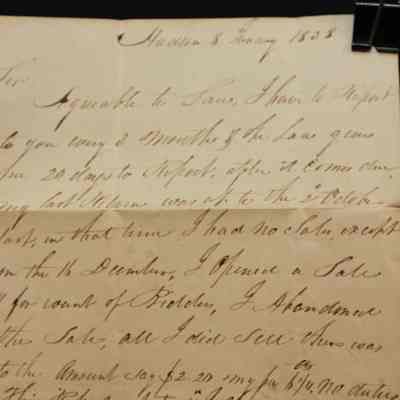 Hudson 8 January 1838
Sir
Agreable to Law, I have to Report
to you every 3 months & the Law gives
me 20 days to Report, after it comes due
my last Return was up to the 2 October
last, in that time I had no Sales, except
on the 16 December, I opened a Sale
& for want of Bidders, I Abandoned
the Sale, all I did Sell then was
to the Amount say $2.20 my pr no duties